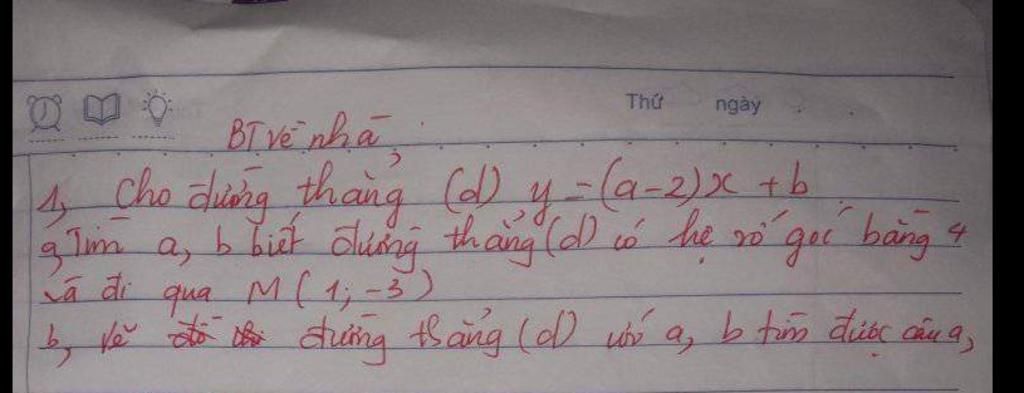 Thứ ngày
BT về nhà
1, Cho đường thẳng (d) y = (a-2)x + b
a, Tìm a, b biết đường thẳng (d) có hệ số góc bằng 4
và đi qua M (1; -3)
b, vẽ đường thẳng (d) với a, b tìm được câu a,